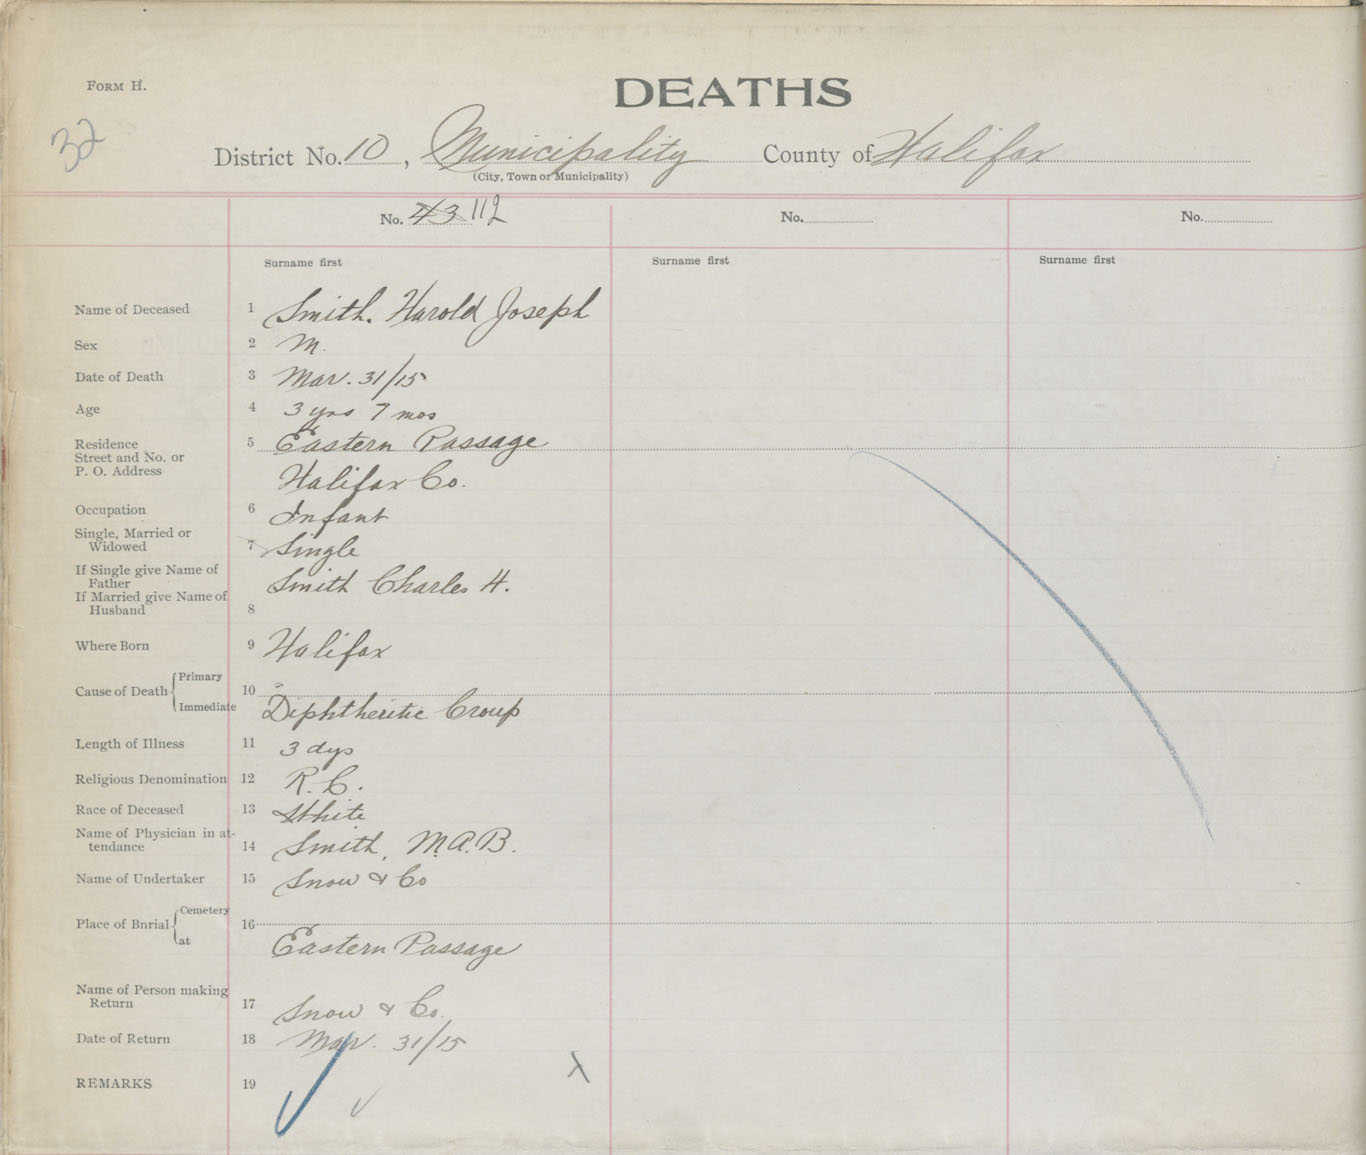 FORM H.
DEATHS
32
District No. 10, Municipality County of Halifax
(City, Town or Municipality)
No. 43 112 No. No.
Surname first Surname first Surname first
Name of Deceased 1 Smith. Harold Joseph
Sex 2 M.
Date of Death 3 Mar. 31/15
Age 4 3 yrs 7 mos
Residence 5 Eastern Passage
Street and No. or
P. O. Address Halifax Co.
Occupation 6 Infant
Single, Married or
Widowed 7 Single
If Single give Name of
Father Smith Charles H.
If Married give Name of
Husband 8
Where Born 9 Halifax
Cause of Death Primary 10
Immediate Diphtheritic Croup
Length of Illness 11 3 dys
Religious Denomination 12 R. C.
Race of Deceased 13 White
Name of Physician in at-
tendance 14 Smith, M.A.B.
Name of Undertaker 15 Snow & Co
Place of Burial Cemetery 16
at Eastern Passage
Name of Person making
Return 17 Snow & Co.
Date of Return 18 Mar. 31/15
REMARKS 19